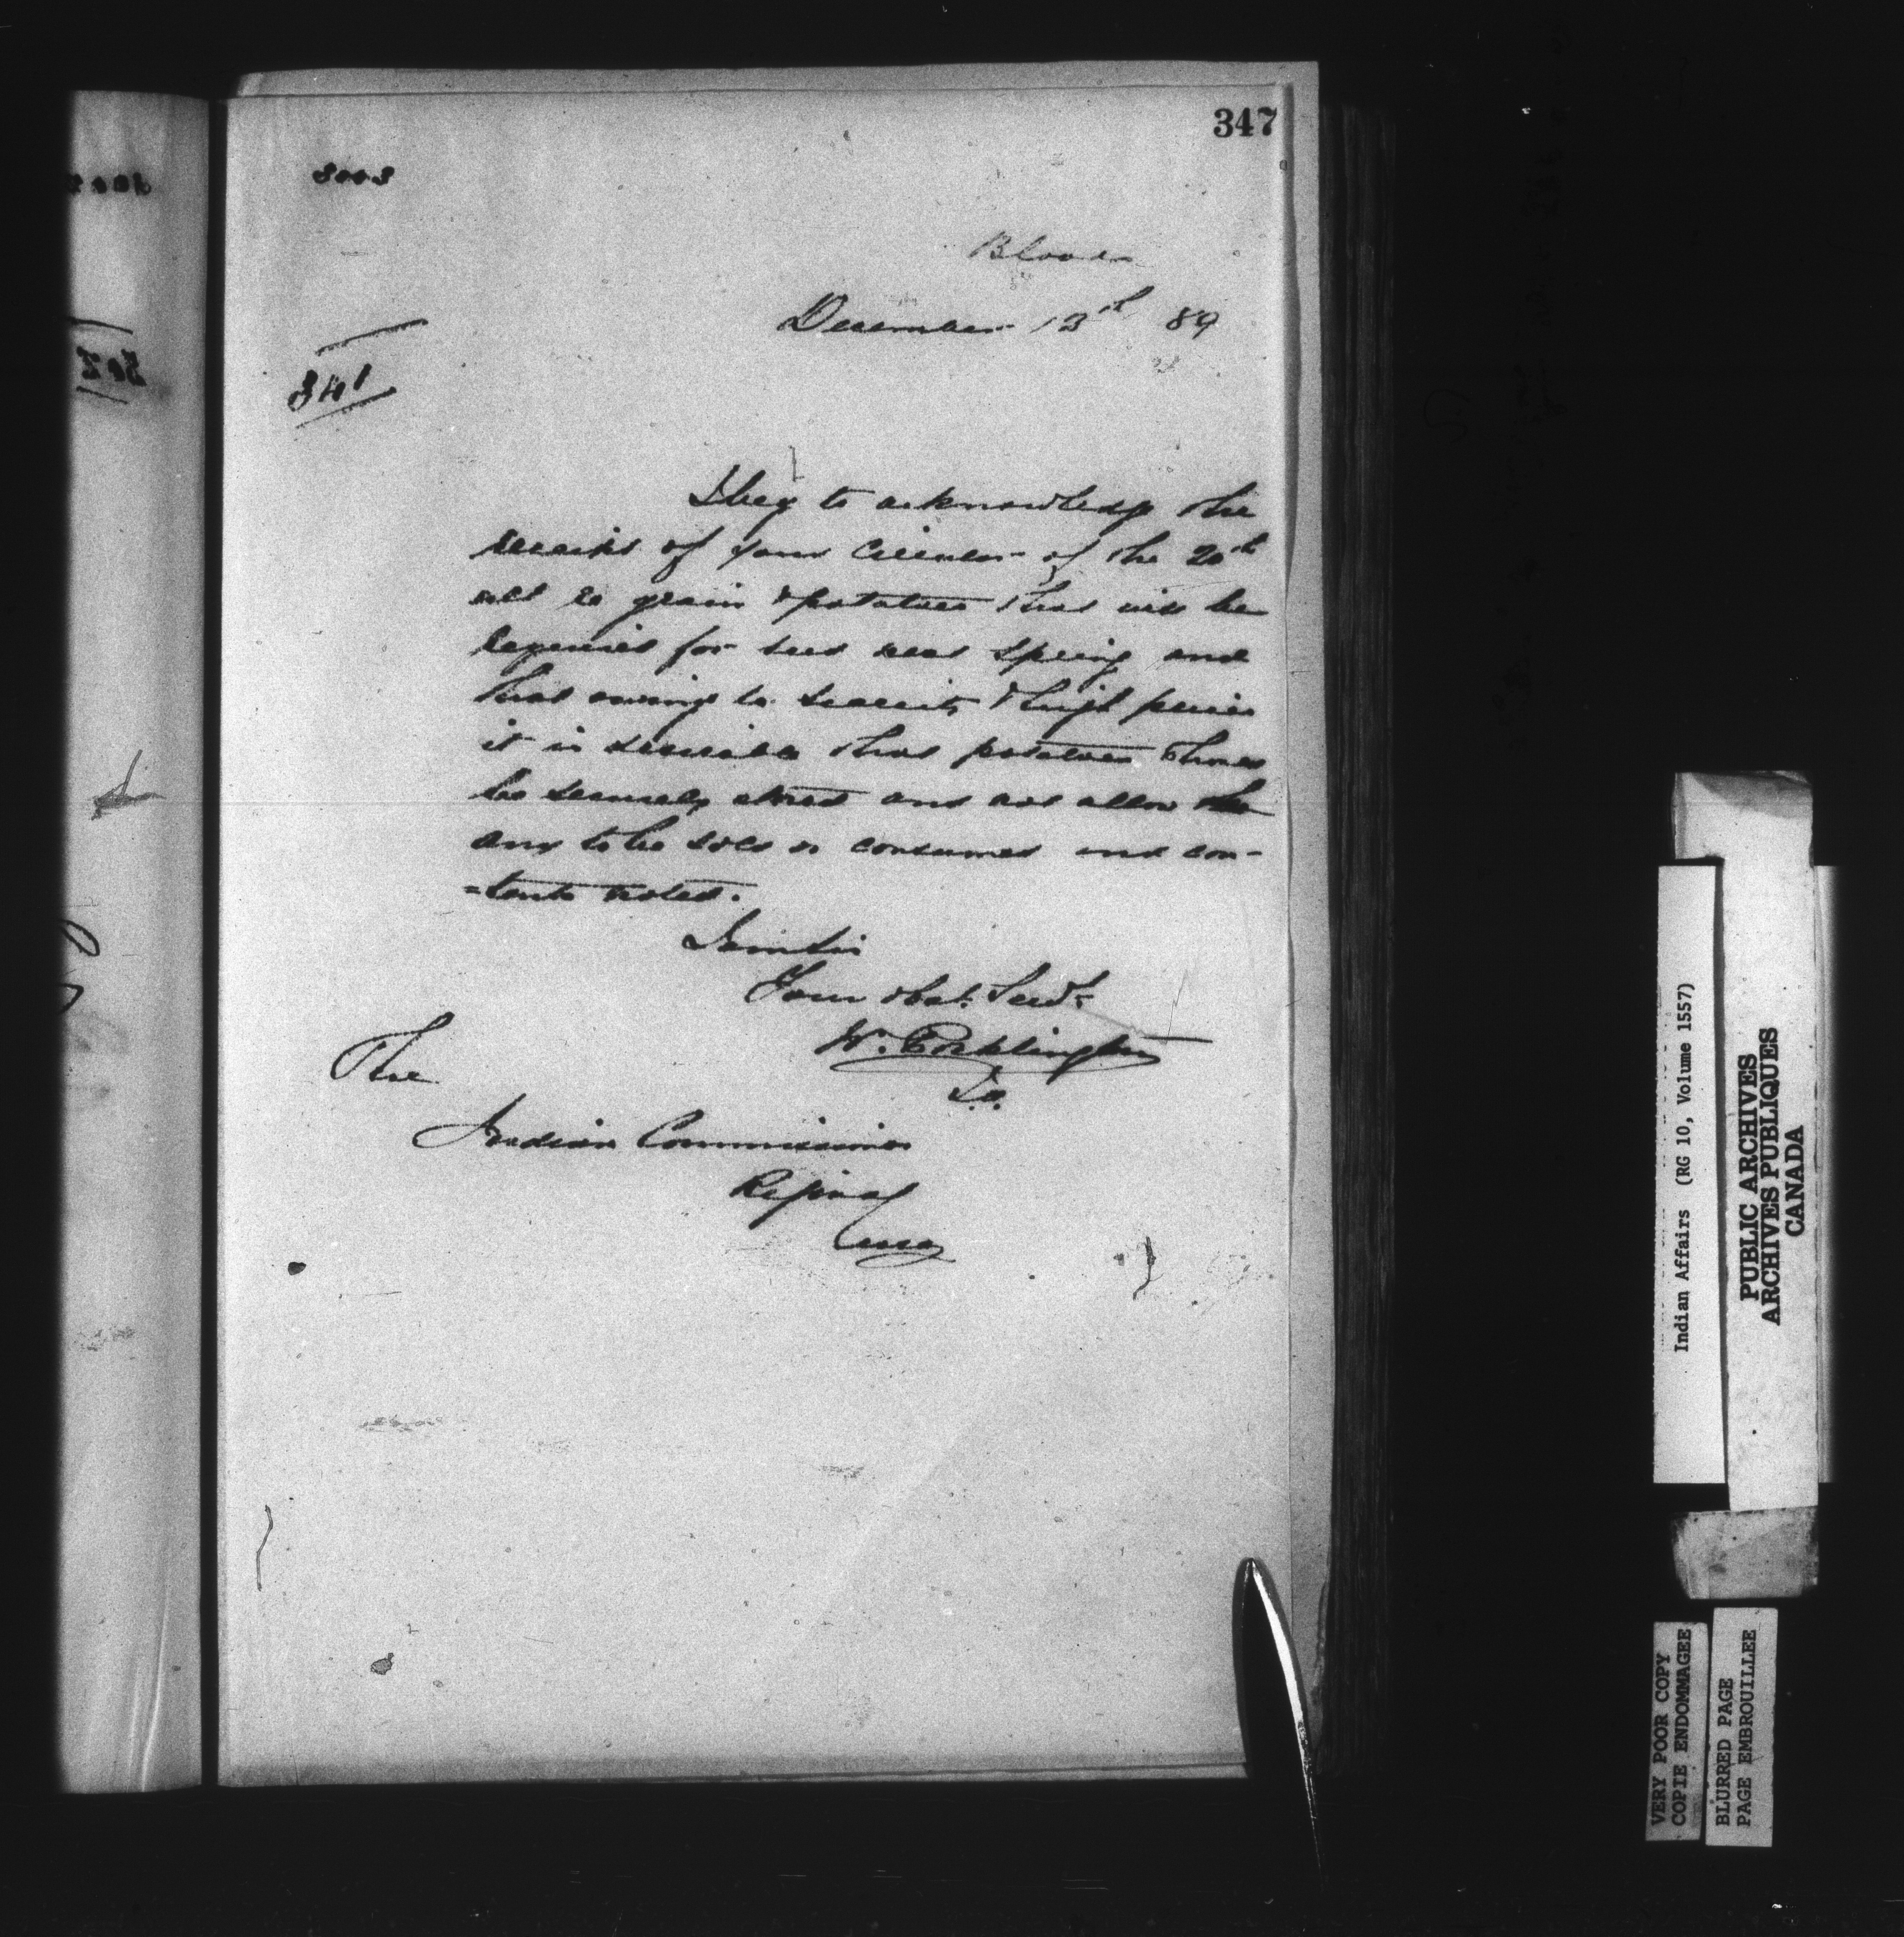 347
Bloods
December 13th 89
341
I beg to acknowledge the
receipt of your Circular of the 20th
ult re grain & potatoes that will be
required for seed next Spring and
that owing to scarcity & high prices
it is desirable that potatoes should
be securely stored and not allow
any to be sold or consumed and con-
=tents noted.
I am Sir
Your obdt. Servt.
W. Pocklington
The
Indian Commissioner
Regina
Indian Affairs (RG 10, Volume 1557)
PUBLIC ARCHIVES
ARCHIVES PUBLIQUES
CANADA
VERY POOR COPY
COPIE ENDOMMAGEE
BLURRED PAGE
PAGE EMBROUILLEE